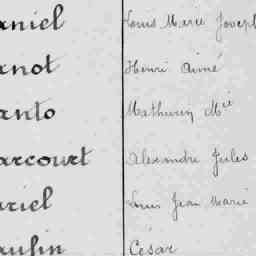 aniel Louis Marie Joseph
anot Henri Aimé
anto Mathurin Mie
arcourt Alexandre Jules
ariel Louis Jean Marie
aulin César